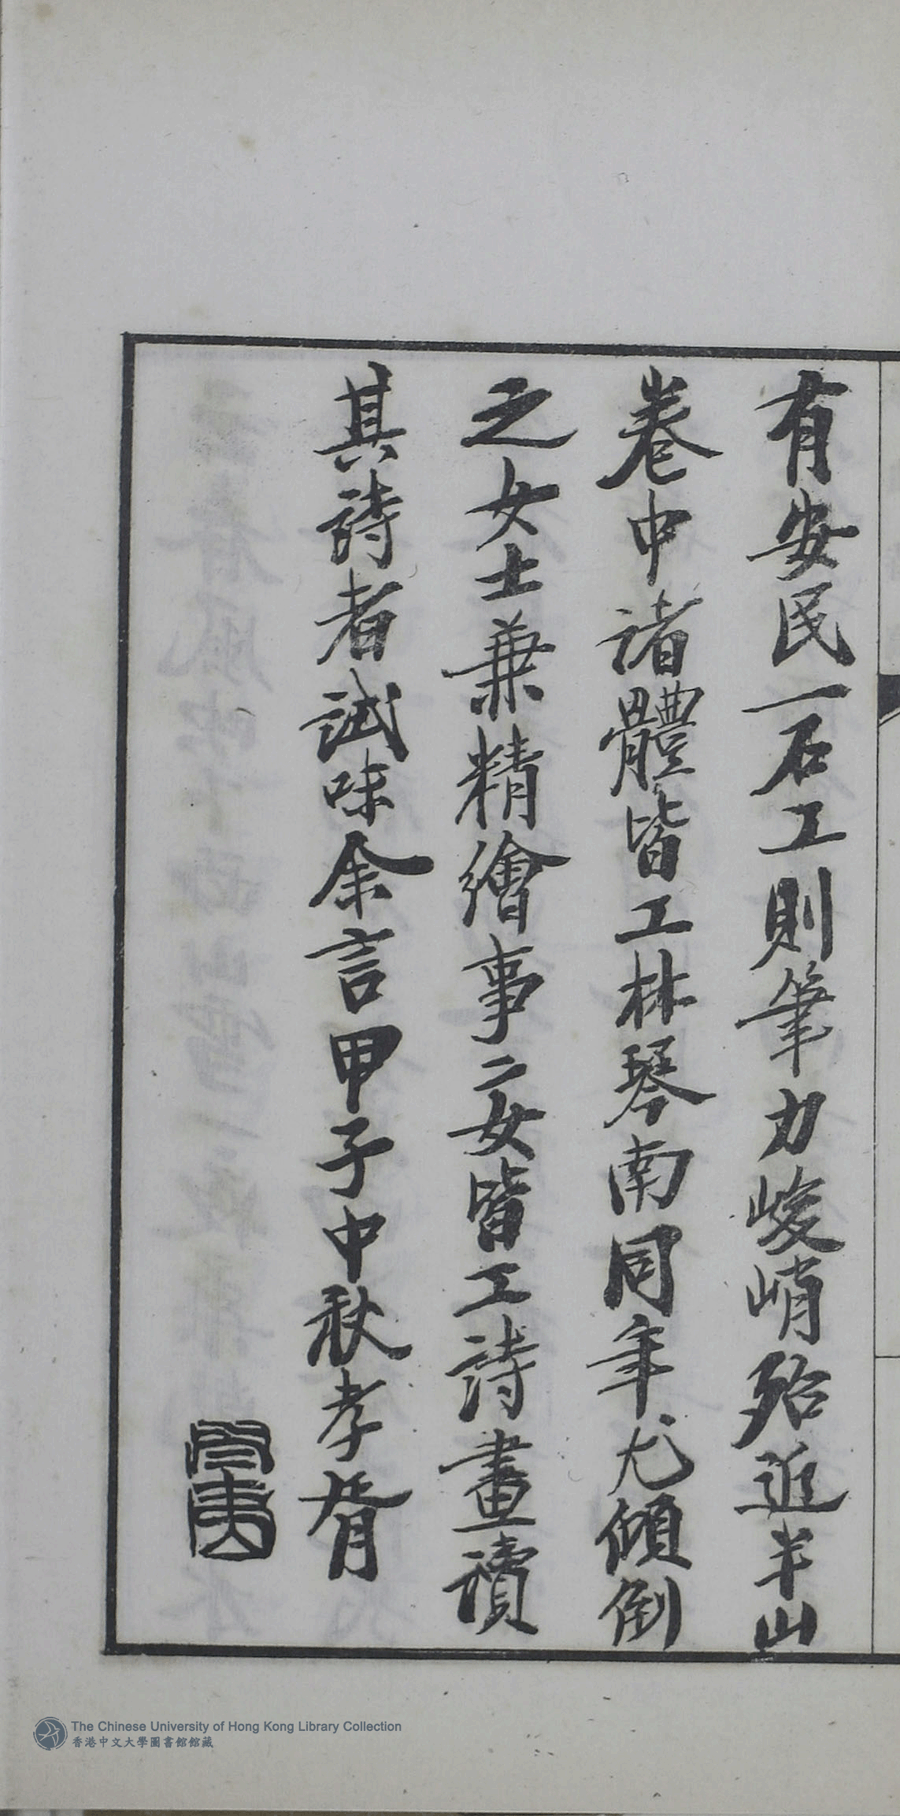 有安民一石工則筆力峻峭殆近半山
卷中諸體皆工林琴南同年尤傾倒
之女士兼精繪事二女皆工詩畫讀
其詩者試味余言甲子中秋孝胥
The Chinese University of Hong Kong Library Collection
香港中文大學圖書館館藏